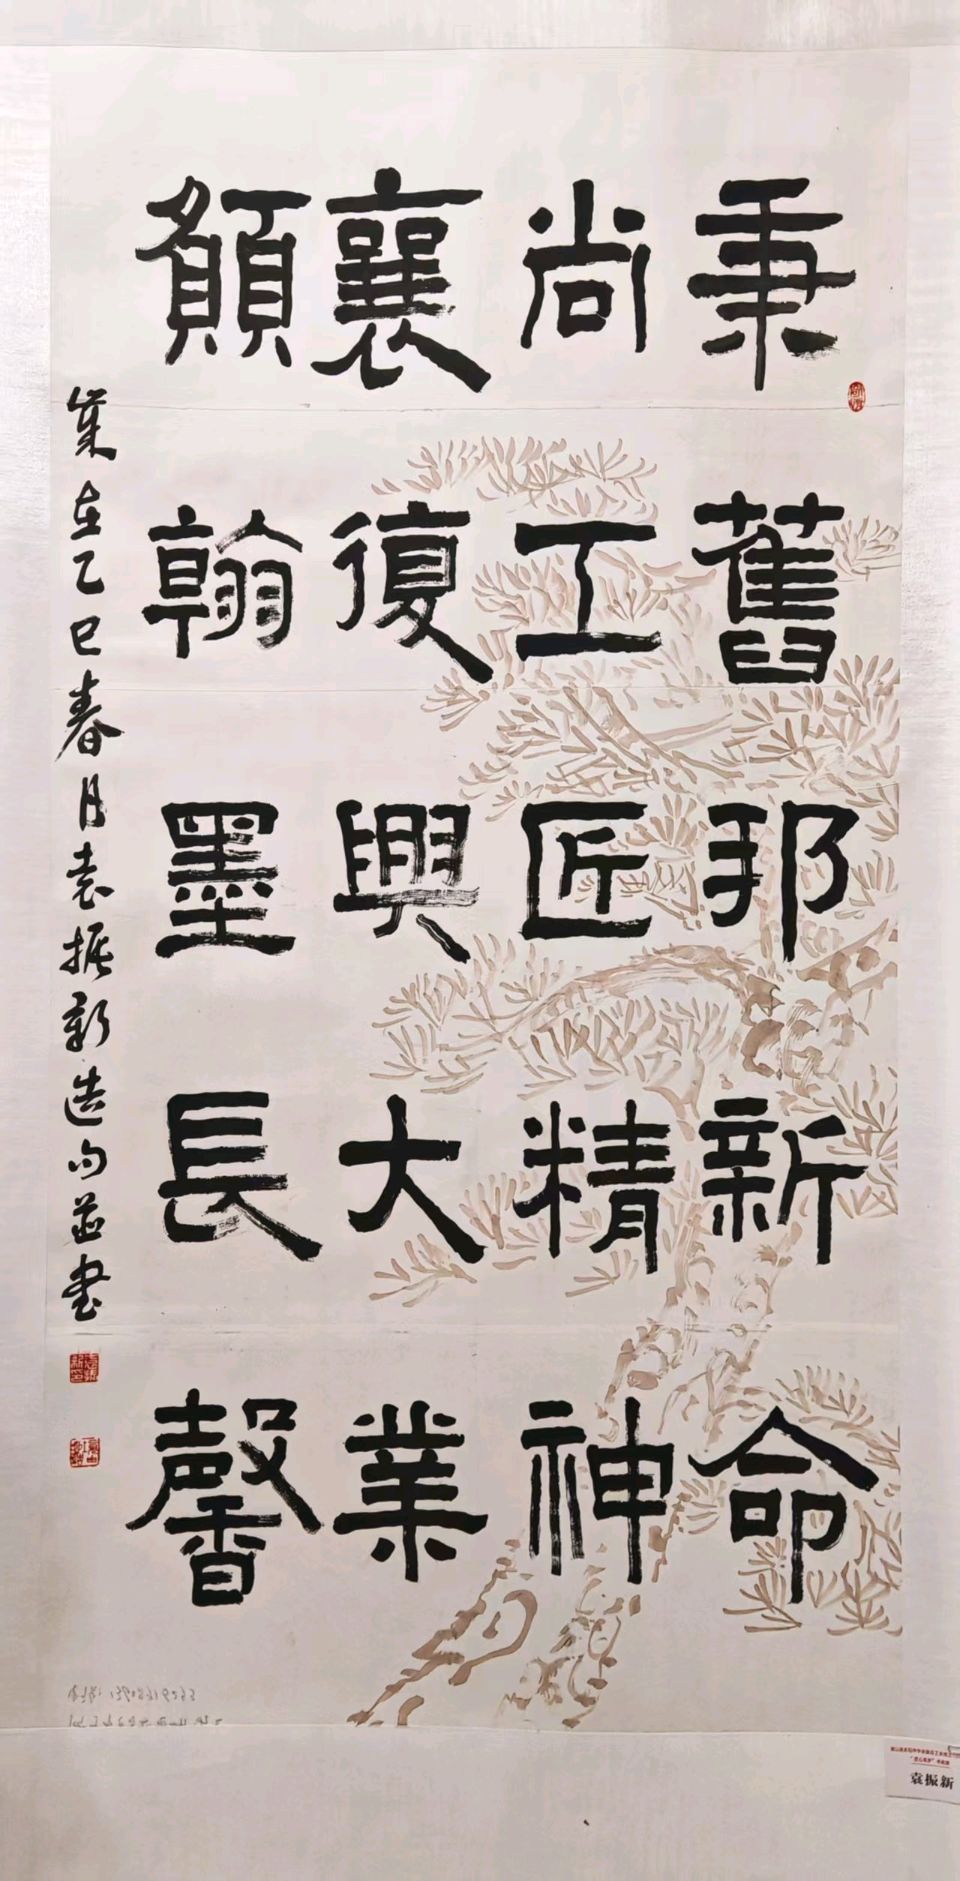 秉舊邦新命
尚工匠精神
襄復興大業
願翰墨長馨
歲在乙巳春月袁振新造句并書
袁振新